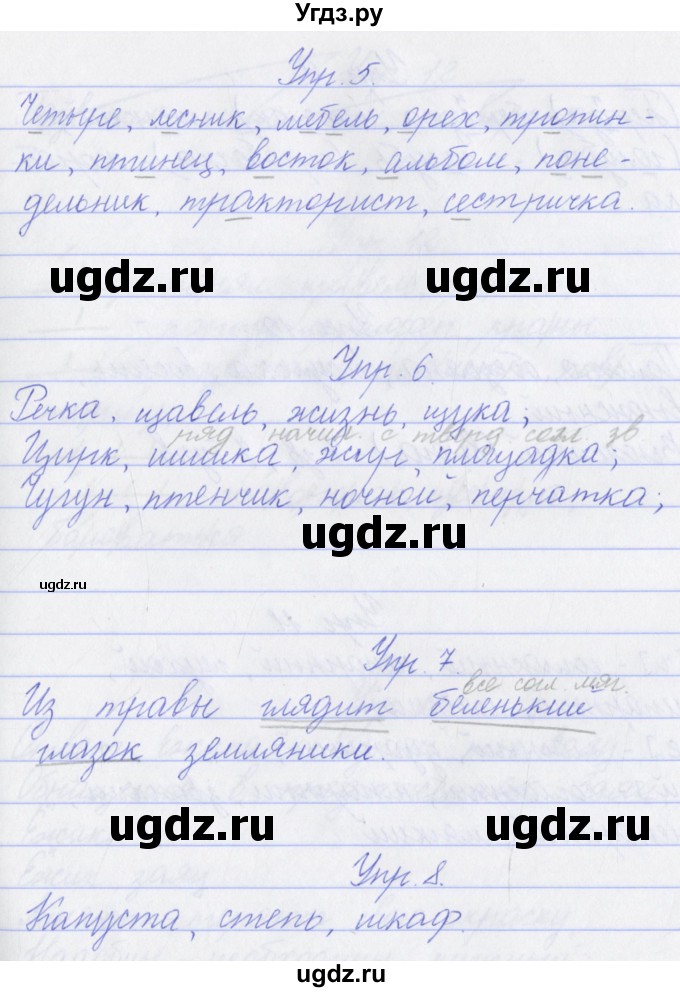 Угдз.ру
Упр. 5.
Четыре, лесник, мебель, орех, тропин-
ки, птинец, восток, альбом, поне-
дельник, тракторист, сестричка.
ugdz.ru ugdz.ru
Упр. 6.
Речка, щавель, жизнь, щука;
ряд начин. с тверд согл. зв
Цирк, шишка, жмут, площадка;
Чугун, птенчик, ночной, перчатка;
ugdz.ru
ugdz.ru
Упр. 7.
все согл. мяг.
Из травы глядит беленький
глазок земляники.
ugdz.ru ugdz.ru
Упр. 8.
Капуста, степь, шкаф.
ugdz.ru